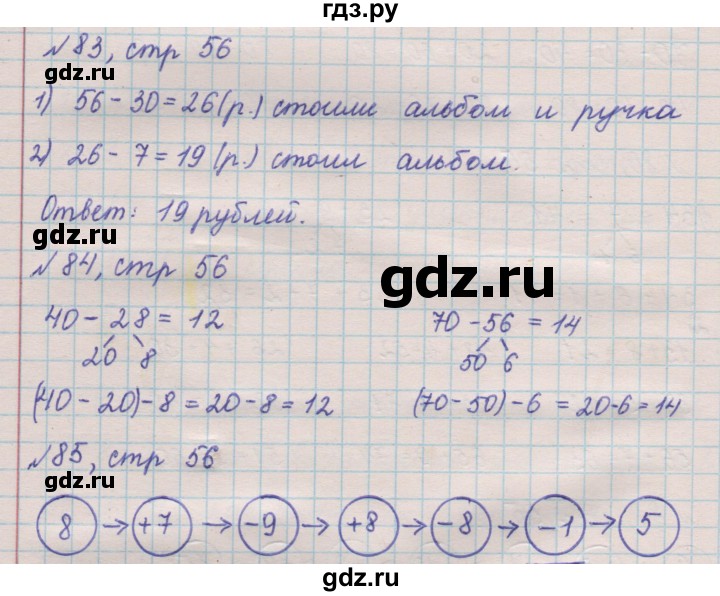 гдз.ру
№83, стр 56
gdz.ru
1) 56-30=26(р.) стоили альбом и ручка
gdz.ru
2) 26-7=19(р.) стоил альбом.
Ответ: 19 рублей.
gdz.ru
№84, стр 56
gdz.ru
40-28=12 70-56=14
20 8 50 6
(40-20)-8=20-8=12 (70-50)-6=20-6=14
№85, стр 56
gdz.ru
8 → +7 → -9 → +8 → -8 → -1 → 5
gdz.ru